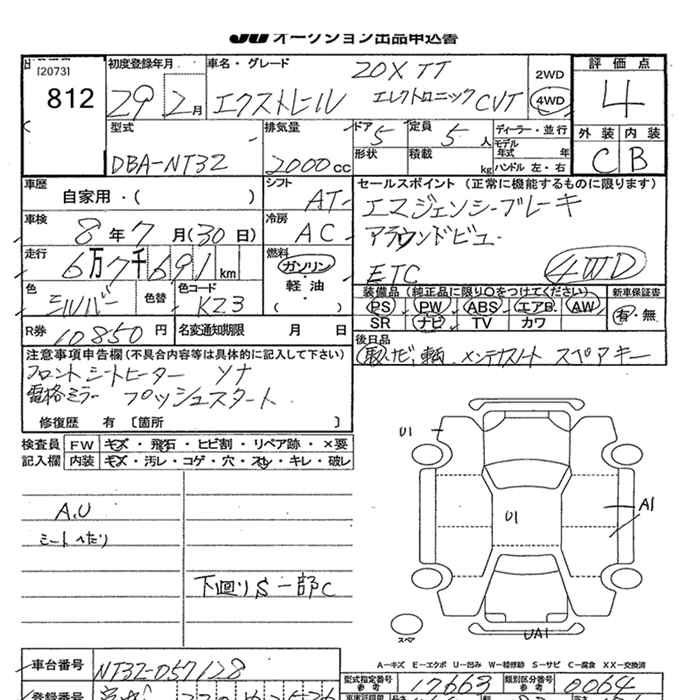 JU オークション出品申込書
[2073]
812
初度登録年月
29 2月
車名・グレード
20X TT
エクストレイル エレクトロニックCVT
2WD
4WD
評価点
4
外装 内装
C B
型式
DBA-NT32
排気量
2000cc
ドア 5
形状
定員 5人
積載 kg
ディーラー・並行
モデル年式 年
ハンドル 左・右
車歴
自家用・( )
シフト
AT
車検
8年7月(30日)
冷房
AC
走行
6万7千691km
燃料
ガソリン
軽油
( )
色
シルバー
色替
色コード
K23
R券
10850円
名変通知期限 月 日
セールスポイント(正常に機能するものに限ります)
エマジェンシーブレーキ
アラウンドビュー
ETC
4WD
装備品(純正品に限り○をつけてください)
PS PW ABS エアB AW
SR ナビ TV カワ
新車保証書
有・無
後日品
取、ナビ、車輌、メンテナスノート スペアキー
注意事項申告欄(不具合内容等は具体的に記入して下さい)
フロントシートヒーター ソナ
電格ミラー プッシュスタート
修復歴 有 [箇所 ]
検査員 FW キズ・飛石・ヒビ割・リペア跡・×要
記入欄 内装 キズ・汚レ・コゲ・穴・スレ・キレ・破レ
A.U
シートへたり
下廻りS一部C
U1
U1
A1
UA1
スペア
A−キズ E−エクボ U−凹み W−補修跡 S−サビ C−腐食 XX−交換済
車台番号
NT32-057128
型式指定番号 参考
17663
類別区分番号 参考
0064
登録番号